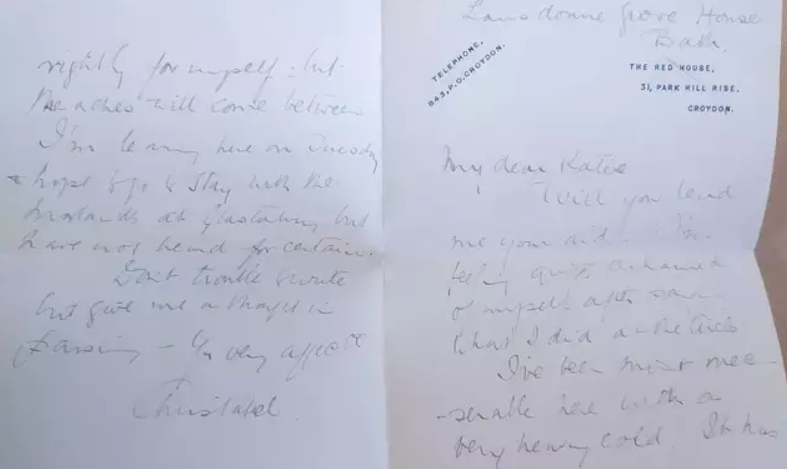 Lansdowne Grove House
Bath.
TELEPHONE,
843, P.O. CROYDON.
THE RED HOUSE,
31, PARK HILL RISE,
CROYDON.
My dear Katie
Will you lend
me your aid. I'm
feeling quite ashamed
of myself after
what I did at the
I've been most mee
-serable here with a
very heavy cold. It has
rightly for myself - but
the aches will come between
I'm leaving here on Tuesday
& hope to go & stay with the
at Glastonbury but
have not heard for certain.
Don't trouble to write
but give me a thought in
passing - Yr very affecte
Christabel.